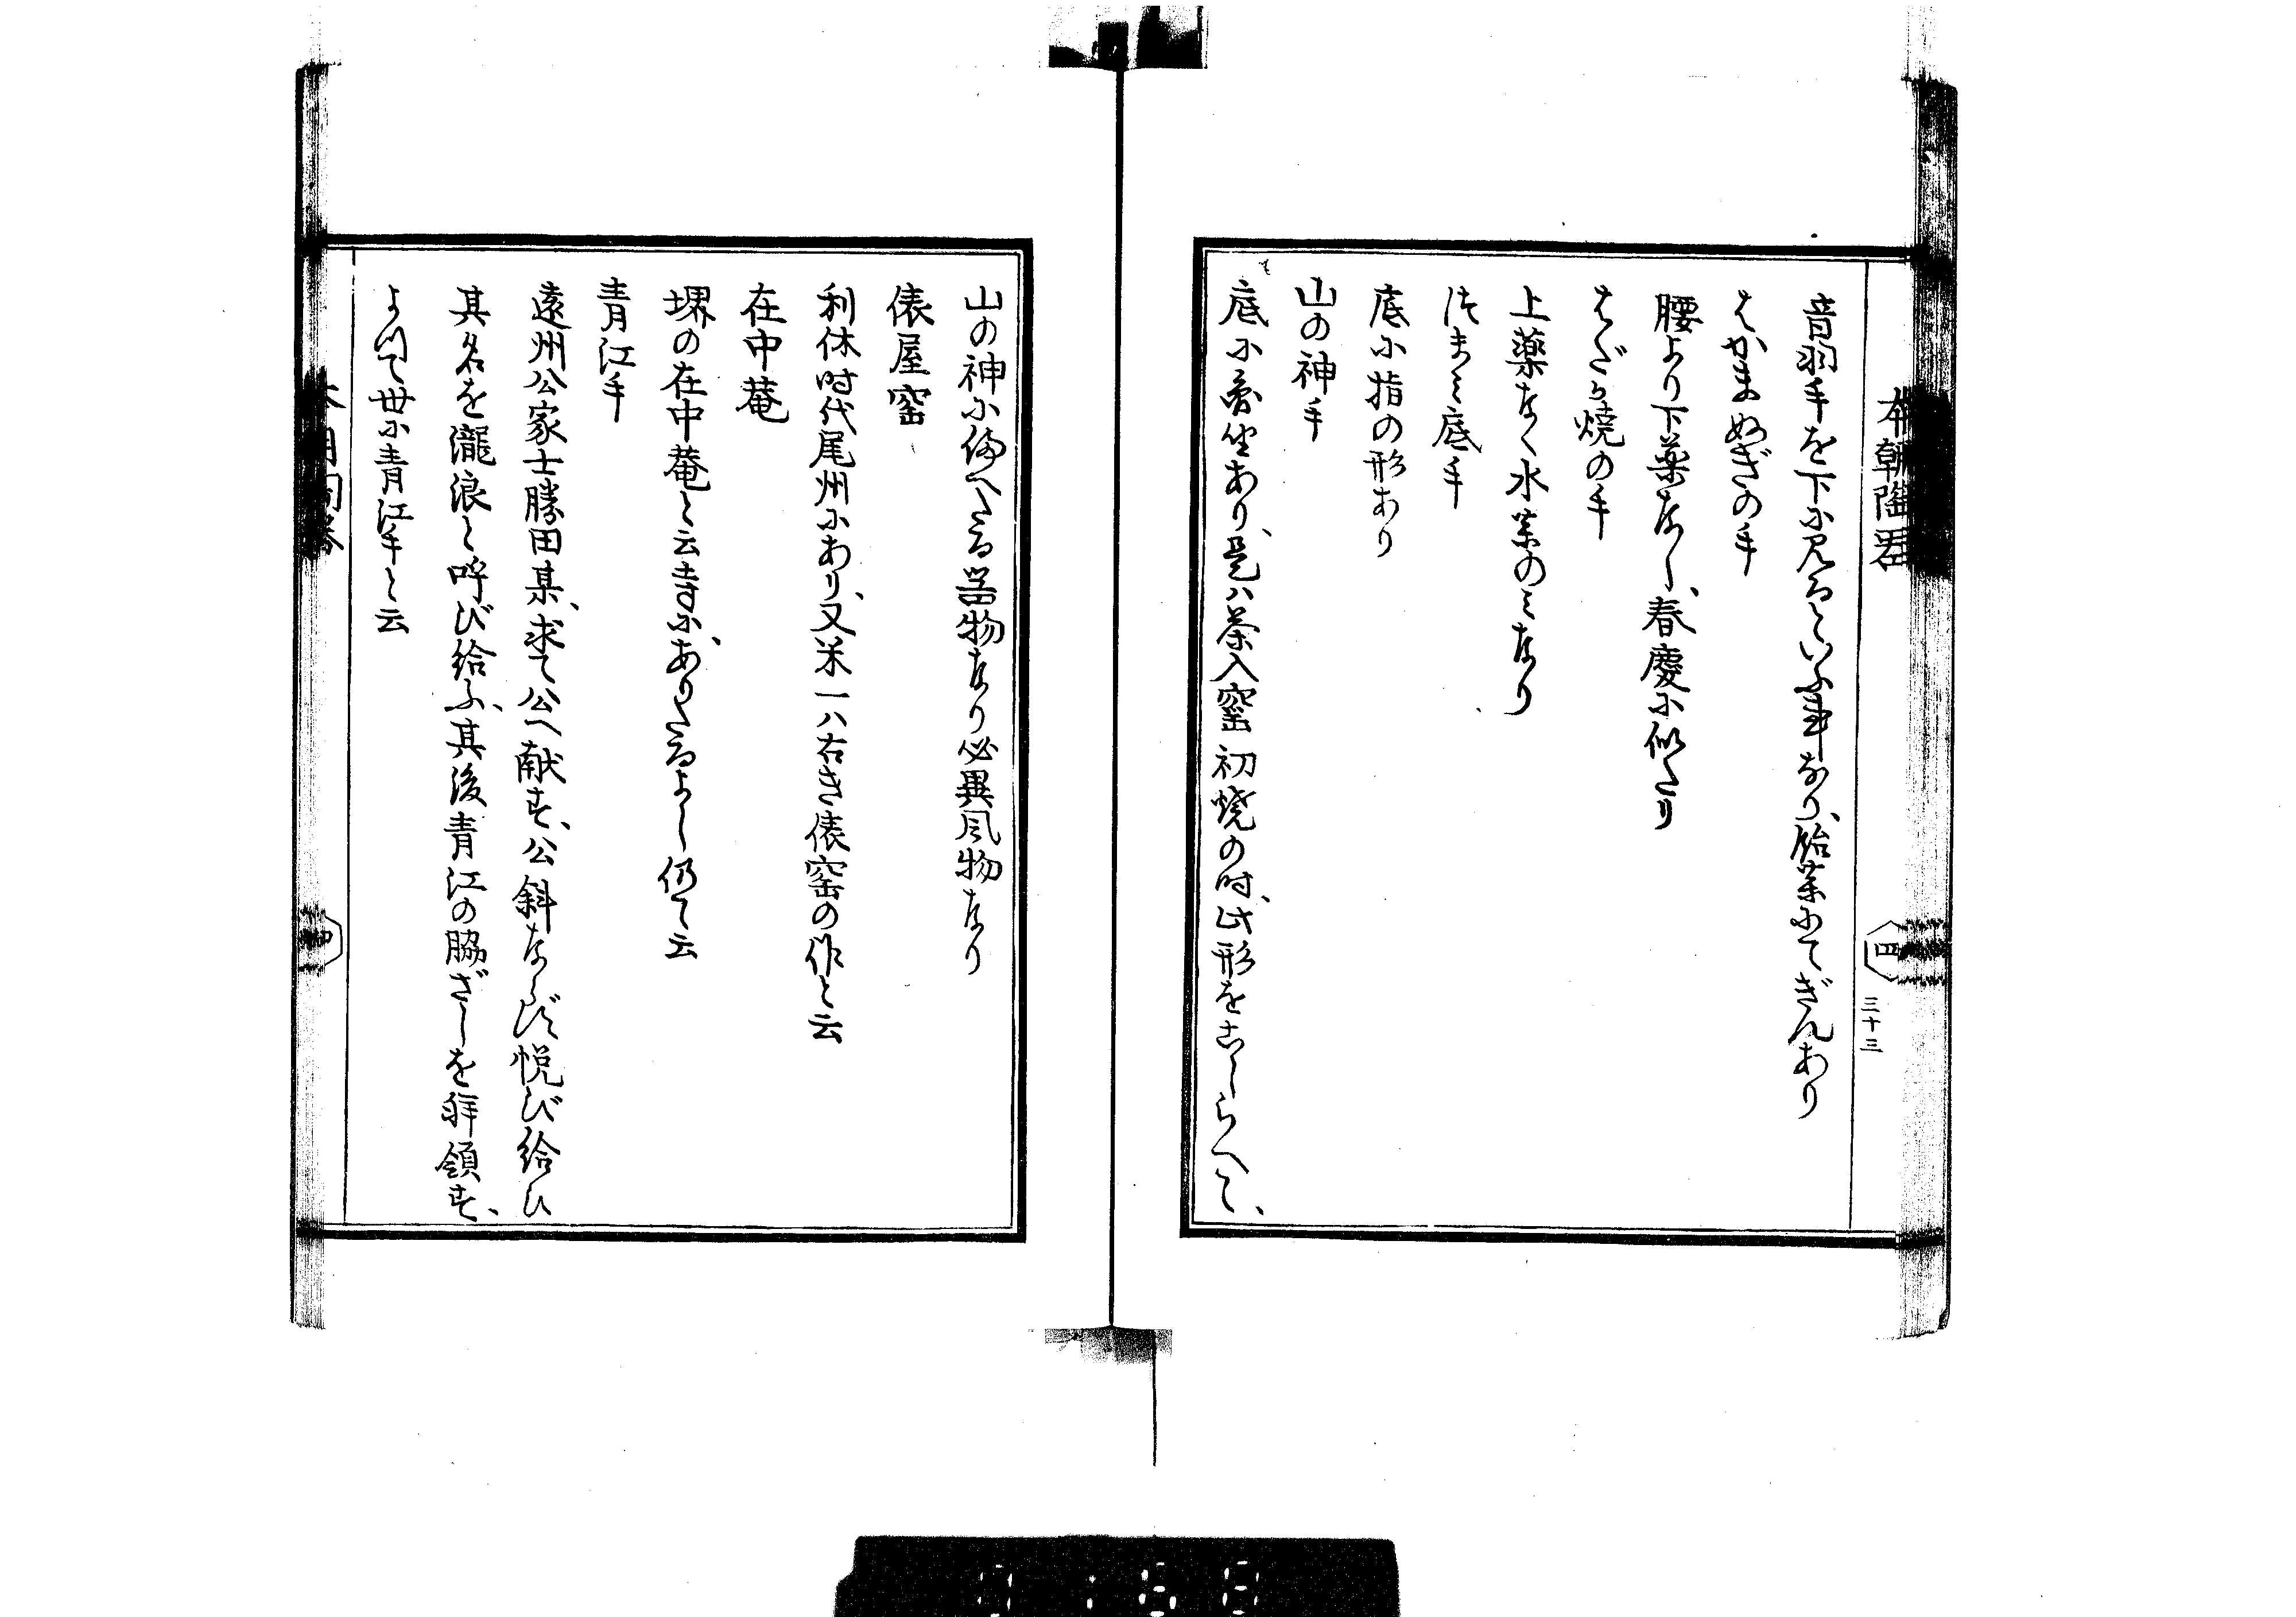 本朝陶器
四
三十三
音羽手を下に見るといふ事なり、飴薬にてぎんあり
はかまぬぎの手
腰より下薬なし、春慶に似たり
はだか焼の手
上薬なく水薬のミなり
つまミ底手
底に指の形あり
山の神手
底に あり、是ハ茶入窯初焼の時、此形をこしらへて、
山の神に備へたる器物なり必異風物なり
俵屋窯
利休時代尾州にあり、又米一ハ右き俵窯の作と云
在中菴
堺の在中菴と云寺に、ありたるよし仍て云
青江手
遠州公家士勝田某、求て公へ献す、公斜ならず悦び給ひ
其名を瀧浪と呼び給ふ、其後青江の脇ざしを拝領す、
よつて世に青江手と云